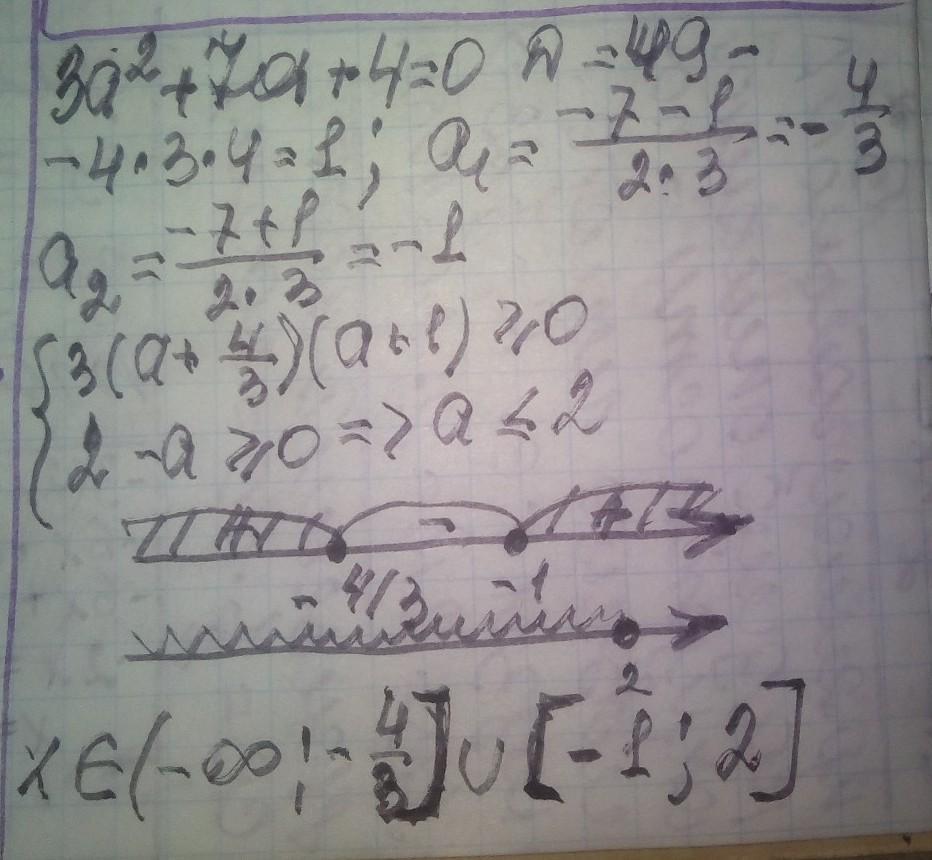 3a² + 7a + 4 = 0 D = 49 -
- 4 · 3 · 4 = 1; a₁ = (-7 - 1)/(2 · 3) = - 4/3
a₂ = (-7 + 1)/(2 · 3) = -1
{ 3(a + 4/3)(a + 1) ⩾ 0
2 - a ⩾ 0 => a ≤ 2
+ - +
- 4/3 -1
2
x ∈ (-∞; - 4/3] ∪ [-1; 2]